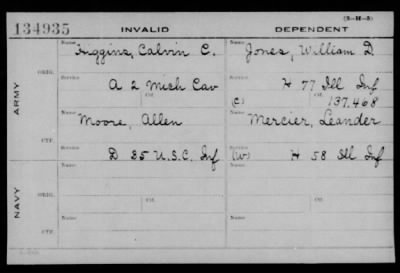 (3-H-3)
134935 INVALID DEPENDENT
Name Higgins, Calvin C. Name Jones, William D
ARMY
ORIG.
Service A 2 Mich Cav Service H 77 Ill Inf
Ctf. (C) Ctf. 137.468
Name Moore, Allen Name Mercier, Leander
CTF.
Service D 35 U.S.C. Inf Service (W) H 58 Ill Inf
NAVY
Name Name
ORIG.
Ctf. Ctf.
Name Name
CTF.